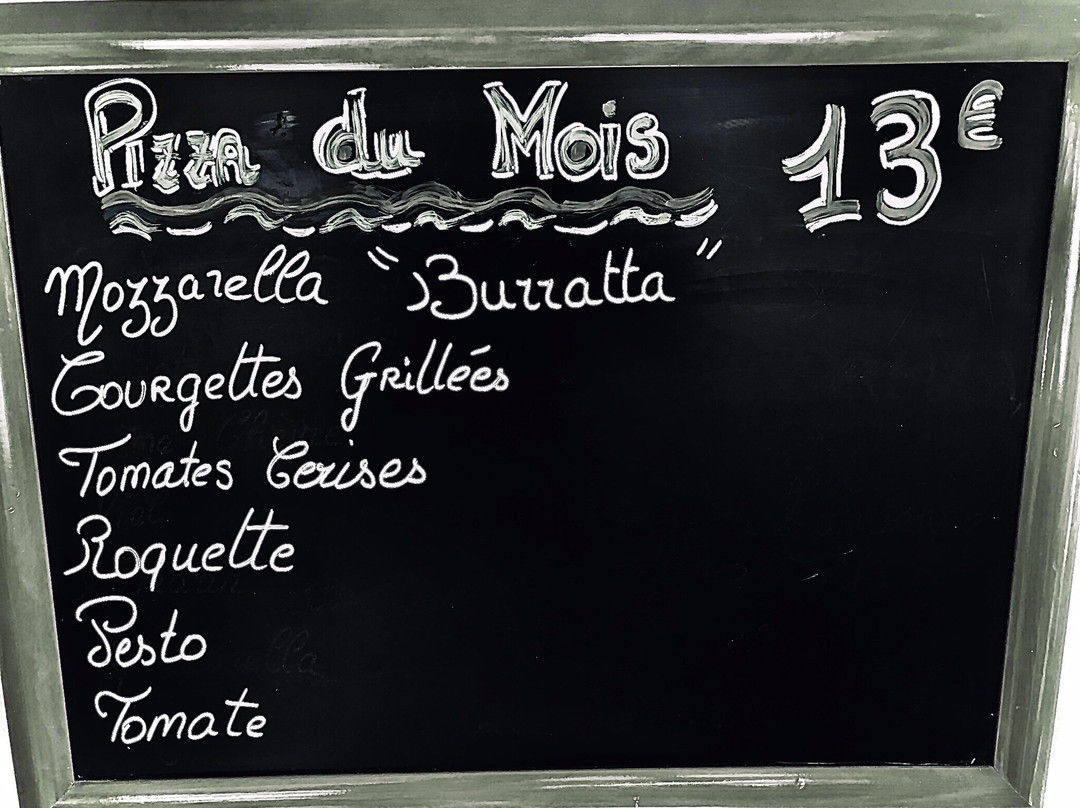 Pizza du Mois 13€
Mozzarella "Burratta"
Courgettes Grillées
Tomates Cerises
Roquette
Pesto
Tomate